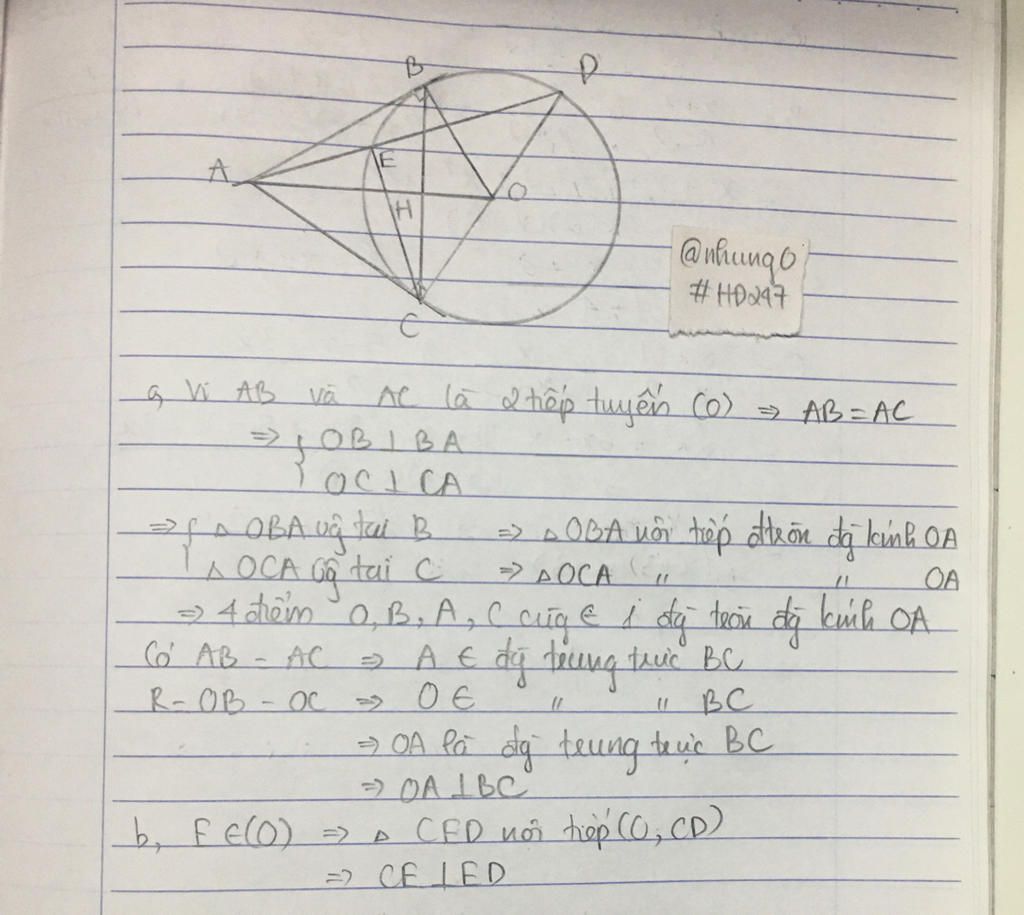 B
D
E
A
O
H
C
@nhungO
#HD247
a, Vì AB và AC là 2 tiếp tuyến (O) => AB = AC
=> { OB ⊥ BA
OC ⊥ CA
=> { △ OBA vg tại B => △ OBA nội tiếp đtròn đg kính OA
△ OCA vg tại C => △ OCA " " OA
=> 4 điểm O, B, A, C cùg ∈ 1 đg tròn đg kính OA
Có AB = AC => A ∈ đg trung trực BC
R = OB = OC => O ∈ " " BC
=> OA là đg trung trực BC
=> OA ⊥ BC
b, E ∈ (O) => △ CED nội tiếp (O, CD)
=> CE ⊥ ED